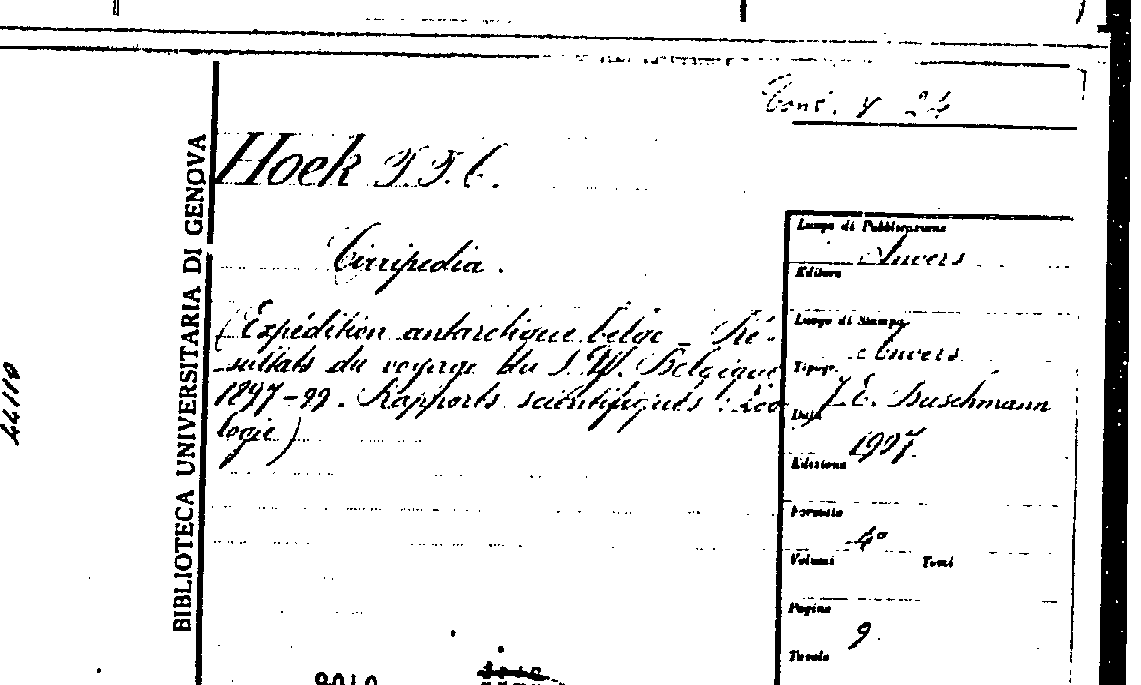 Cont. γ 24
BIBLIOTECA UNIVERSITARIA DI GENOVA
44119
Hoek P.P.C.
Cirripedia.
(Expédition antarctique belge - Ré-
sultats du voyage du S. Y. Belgique
1897-99. Rapports scientifiques: Zoo
logie)
Luogo di Pubblicazione
Anvers
Editore
Luogo di Stampa
Anvers
Tipogr.
J. E. Buschmann
Data
1907
Edizione
Formato
4°
Volumi Tomi
Pagine
9
Tavole